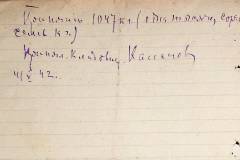 Принято 1047 кг. (одна тысяча сорок
семь кг)
Принял. Кладовщ. Касьянов
4/X 42.